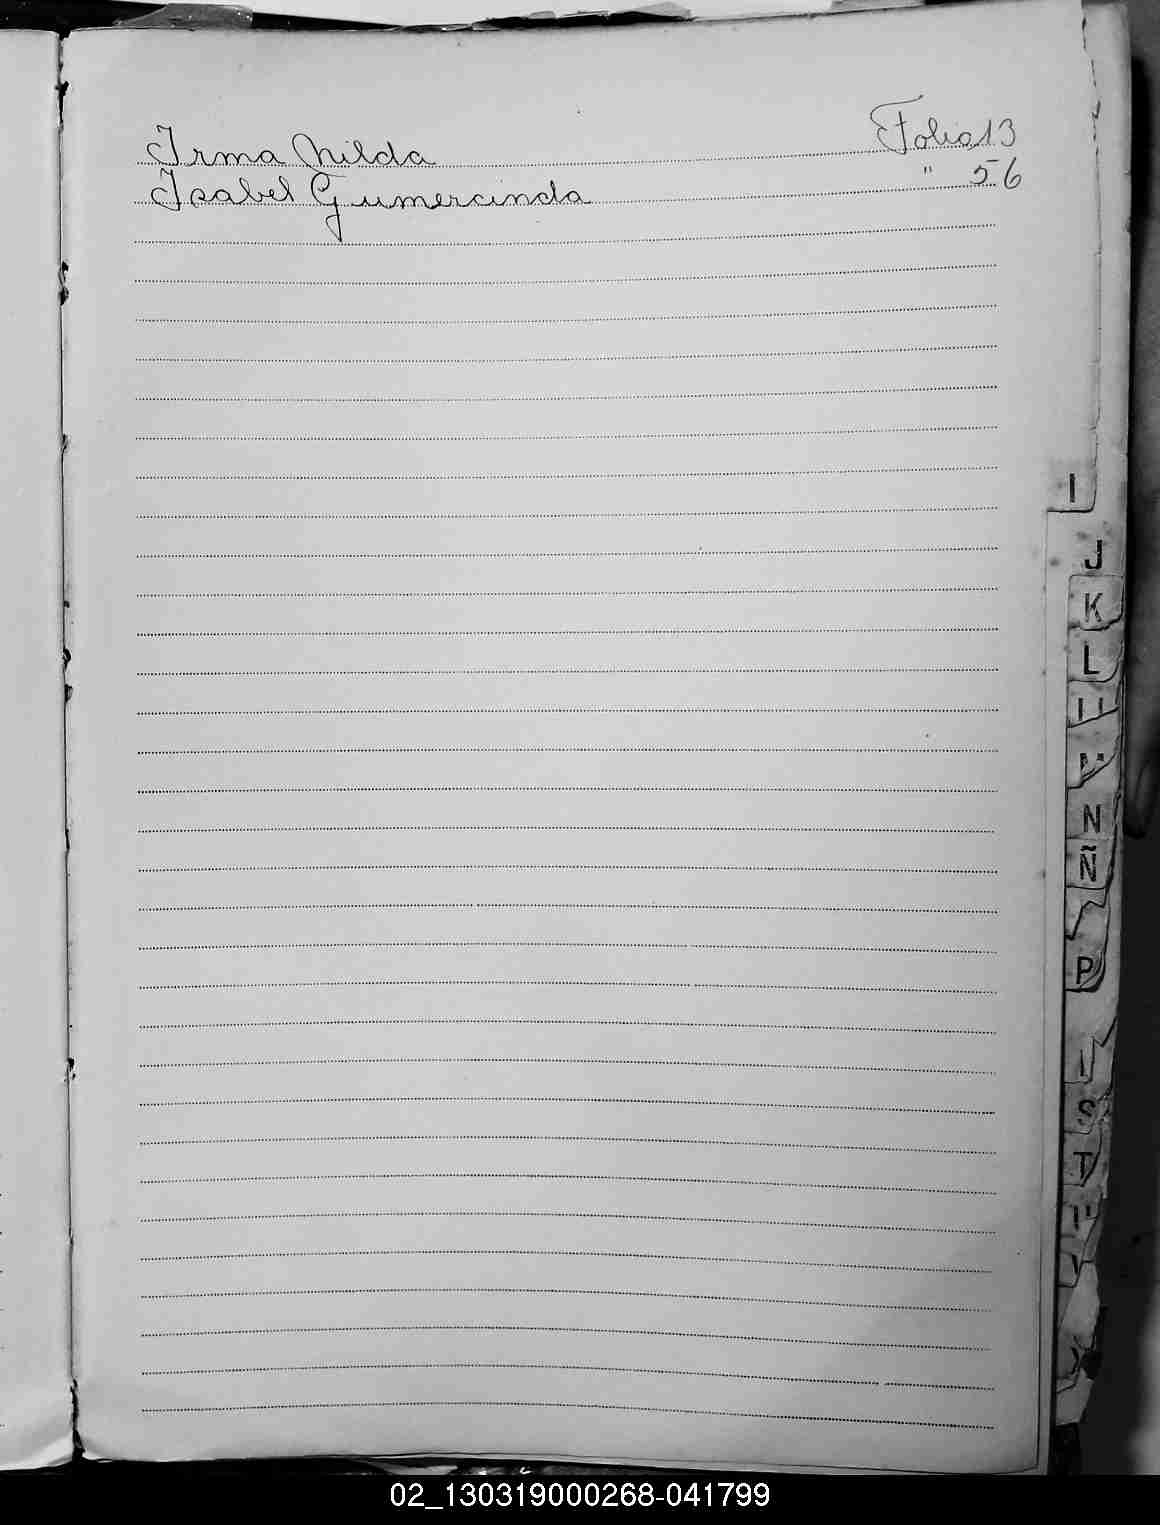 Irma Nilda Folio 13
Isabel Gumercinda " 56
I
J
K
L
N
Ñ
P
S
T
02_130319000268-041799